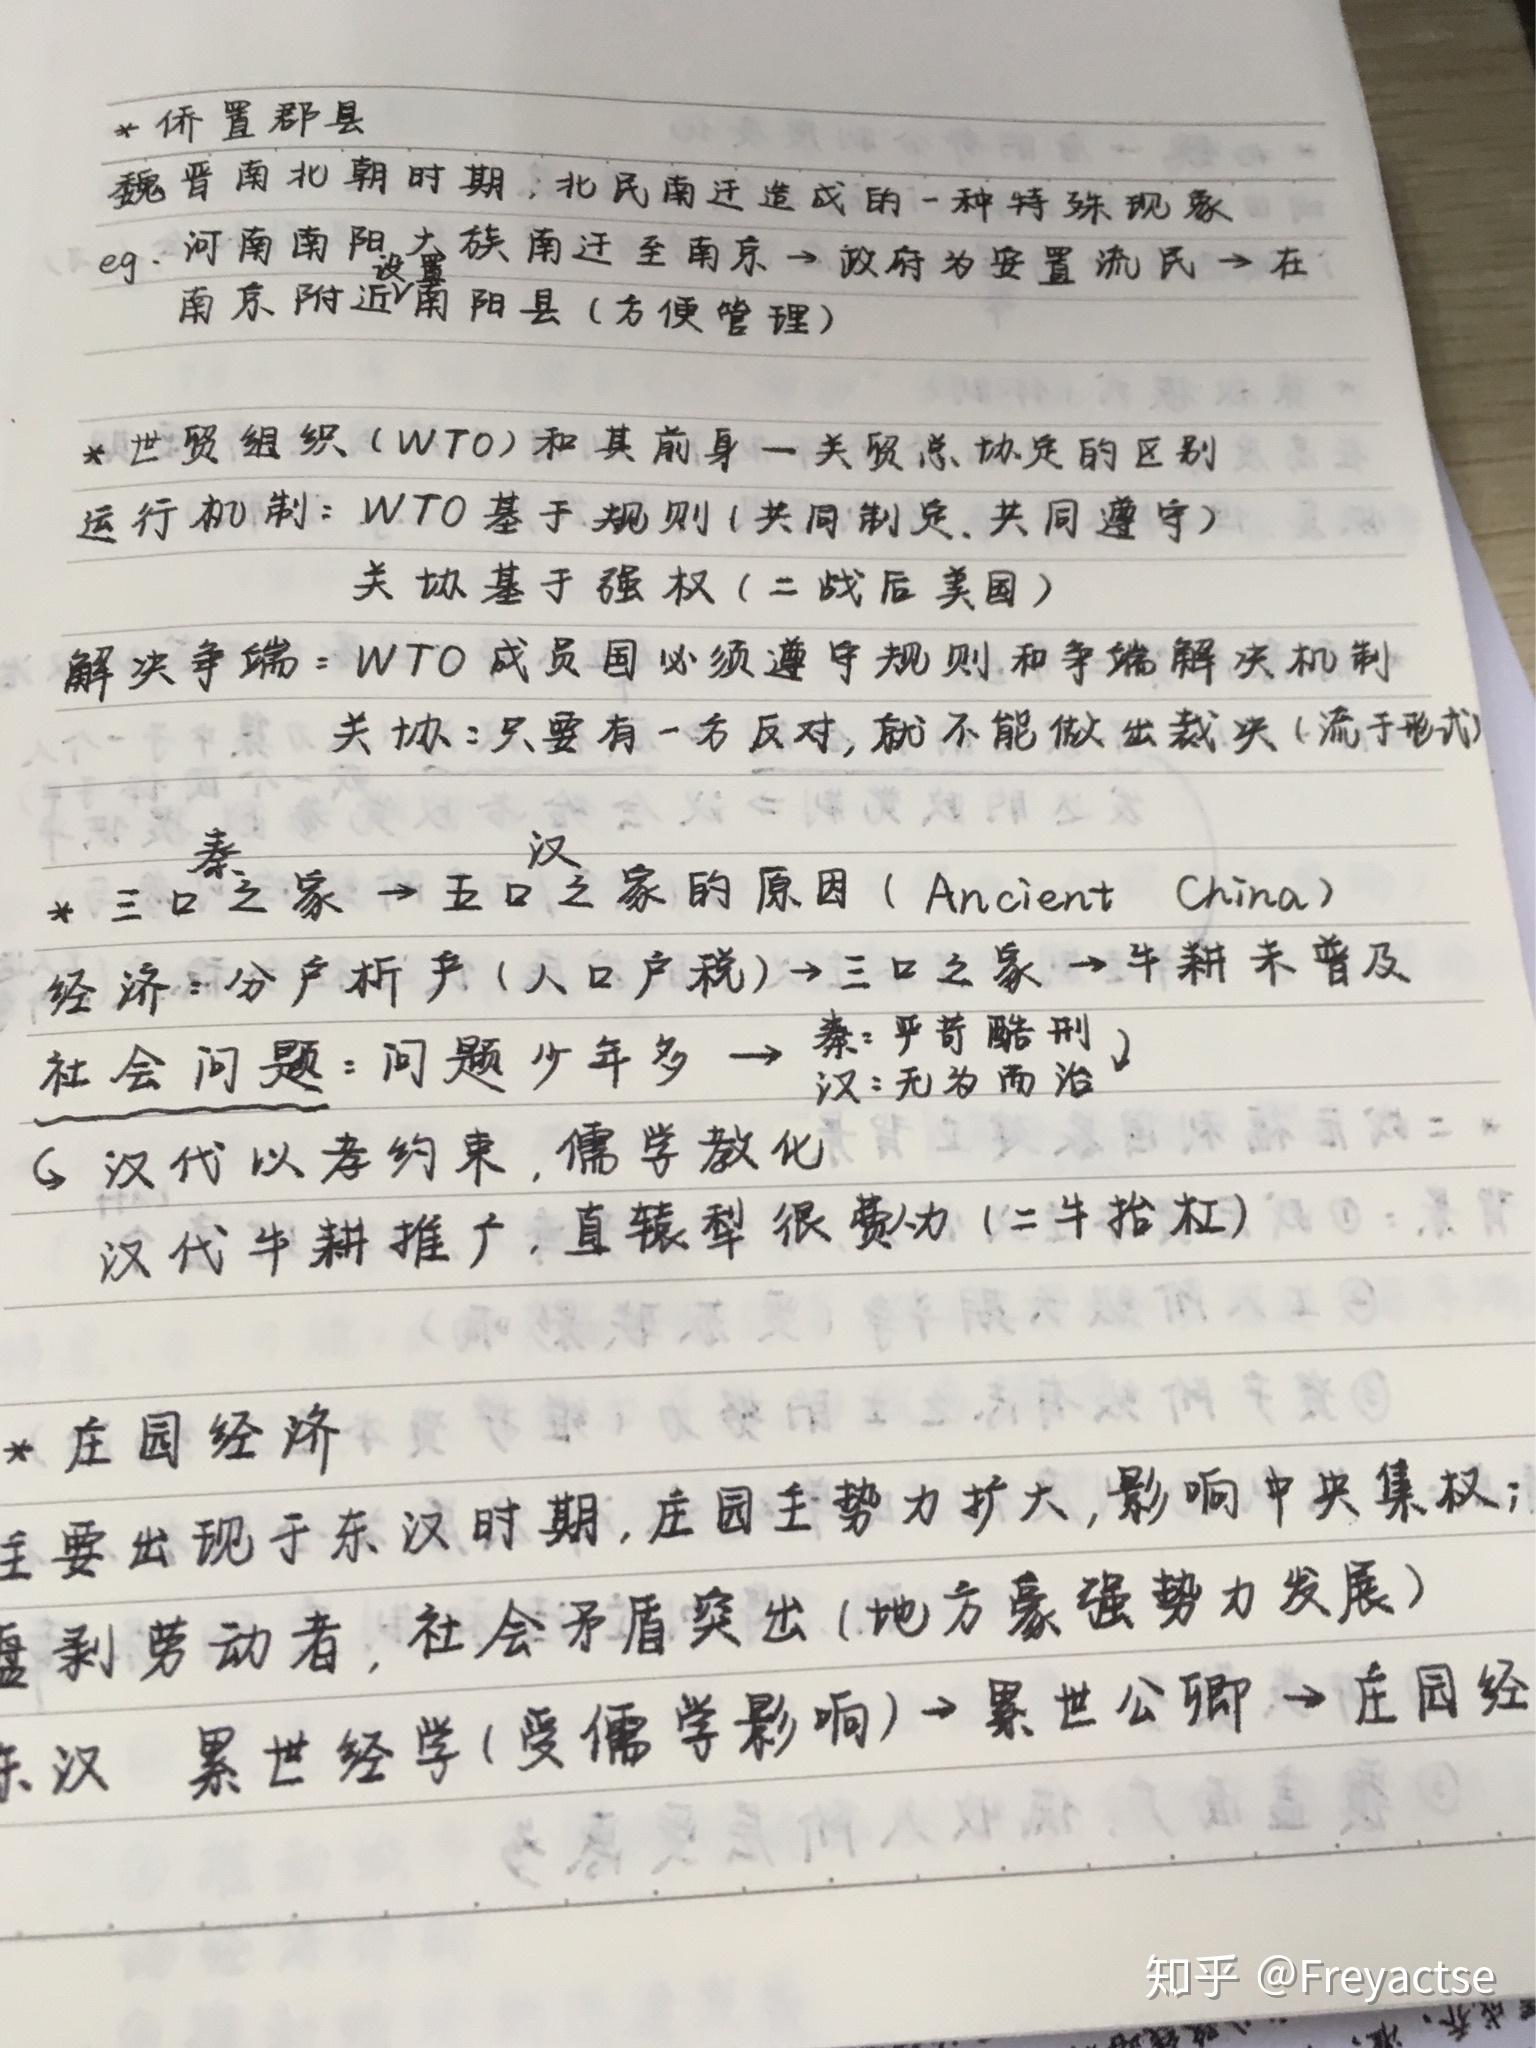 * 侨置郡县
魏晋南北朝时期，北民南迁造成的一种特殊现象
eg. 河南南阳大族南迁至南京→政府为安置流民→在
设置
南京附近∨南阳县(方便管理)
* 世贸组织(WTO)和其前身一关贸总协定的区别
运行机制：WTO基于规则(共同制定、共同遵守)
关协基于强权(二战后美国)
解决争端：WTO成员国必须遵守规则和争端解决机制
关协：只要有一方反对，就不能做出裁决(流于形式)
秦 汉
* 三口之家→五口之家的原因(Ancient China)
经济：分户析产(人口户税)→三口之家→牛耕未普及
社会问题：问题少年多→ 秦：严苛酷刑
汉：无为而治
汉代以孝约束，儒学教化
汉代牛耕推广，直辕犁很费力(二牛抬杠)
* 庄园经济
主要出现于东汉时期，庄园主势力扩大，影响中央集权；
盘剥劳动者，社会矛盾突出(地方豪强势力发展)
东汉 累世经学(受儒学影响)→累世公卿→庄园经
知乎 @Freyactse